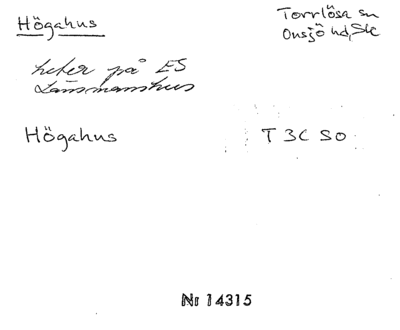 Högahus
Torrlösa sn
Onsjö hd, Sk
heter på ES
Länsmanshus
Högahus T 3C SO
Nr 14315